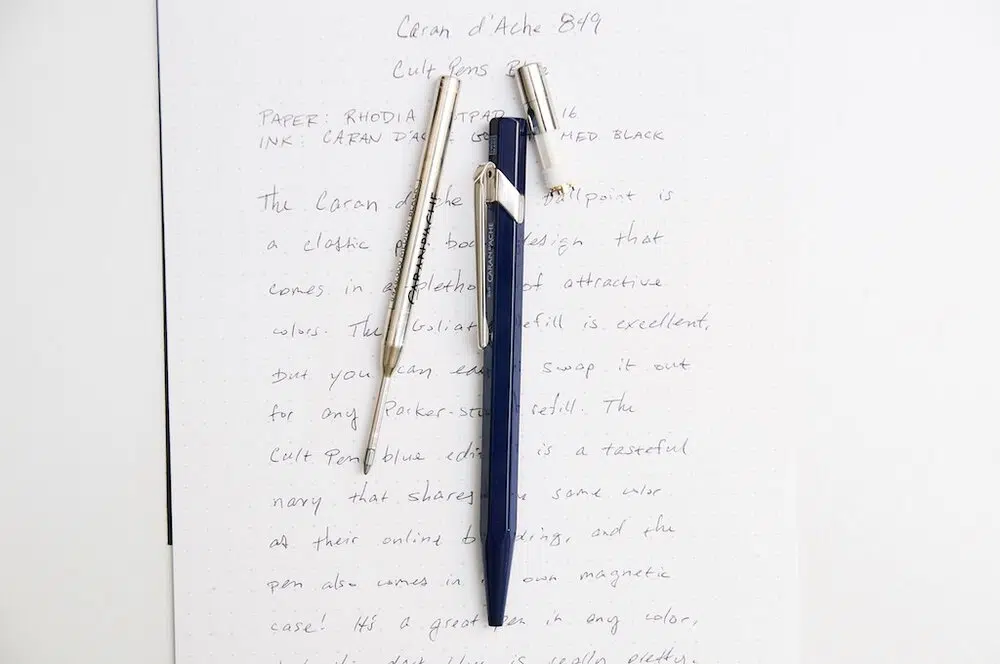 Caran d'Ache 849
Cult Pens Blue
PAPER: RHODIA 16
INK: CARAN MED BLACK
The Caran ballpoint is
a classic design that
comes in a plethora of attractive
colors. The Goliath refill is excellent,
but you can swap it out
for any Parker-style refill. The
Cult Pens blue edition is a tasteful
navy that shares same color
as their online and the
pen also comes in own magnetic
case! It's a great pen in any color,
is really pretty.
CARAN D'ACHE
CARAN D'ACHE